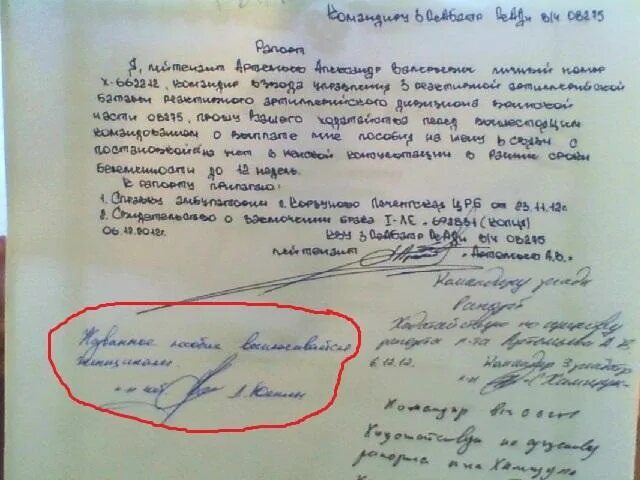 Командиру 3 РеАБатр РеАДн в/ч 08275
Рапорт
Я, лейтенант Артемьев Александр Валерьевич личный номер
Х-662212, командир взвода управления 3 реактивной артиллерийской
батареи реактивного артиллерийского дивизиона войсковой
части 08275, прошу Вашего ходатайства перед вышестоящим
командованием о выплате мне пособия на жену в связи с
постановкой на учет в женской консультации в ранние сроки
беременности до 12 недель.
К рапорту прилагаю:
1. Справку амбулатории г. Корзуново Печенгская ЦРБ от 23.11.12г.
2. Свидетельство о заключении брака I-ЛЕ 692831 (копия)
06.12.2012г. КВУ 3 РеАБатр РеАДн в/ч 08275
лейтенант Артемьев А.В.
Командиру реадн
Рапорт
Ходатайствую по существу
рапорта л-та Артемьева А.В.
6.12.12. Командир 3 реабатр
Названное пособие выплачивается
женщинам.
Командир в/ч 08275
Ходатайствую по существу
рапорта